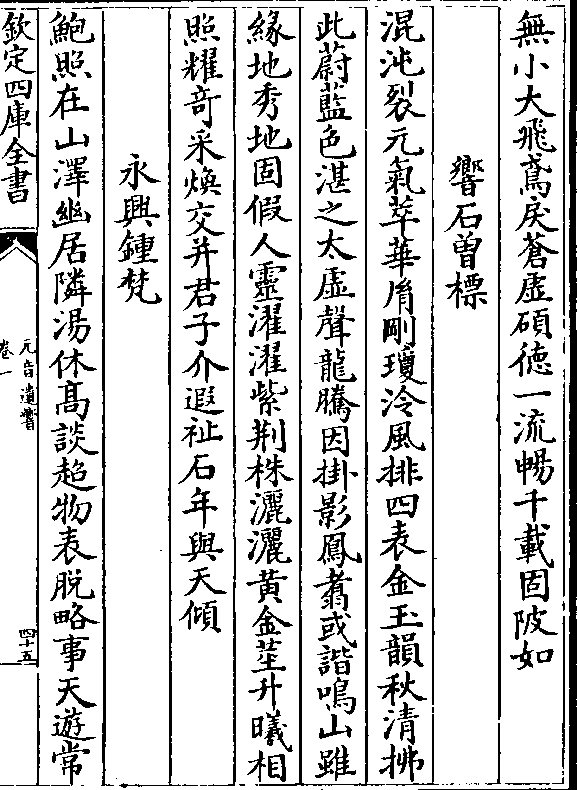 無小大飛鳶戾蒼虚碩徳一流暢千載固陂如
響石曽標
混沌裂元氣萃華胥剛瓊泠風排四表金玉韻秋清拂
此蔚藍色湛之太虚聲龍騰因掛影鳳翥或諧鳴山雖
緣地秀地固假人靈濯濯紫荆株灑灑黄金莖升曦相
照耀奇采煥交并君子介遐祉石年與天傾
永興鍾梵
鮑照在山澤幽居隣湯休髙談超物表脱略事天遊常
欽定四庫全書
元音遺響
卷一
四十五